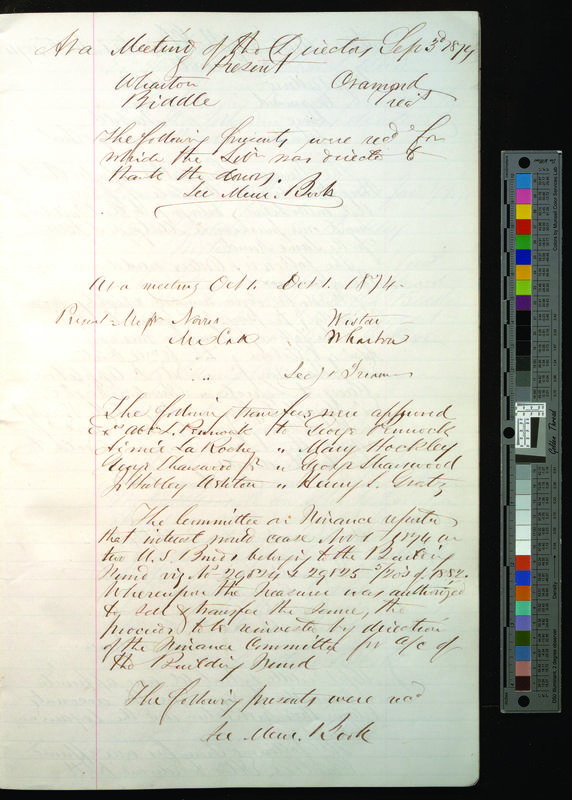 At a Meeting of the Directors Sep 3d 1874
Present
Wharton Oramond
Biddle
The following presents were recd for
which the Libn was directed to
thank the donors.
See Mem. Book
At a meeting Oct 1. Oct 1. 1874.
Present Messrs Norris Wistar
McCall Wharton
Secy & Treasr
The following transfers were approved
Exs Abm L. Pennock to George Pennock
Aimée LaRoche " Mary Hockley
George Sharswood Jr " George Sharswood
J. Hubley Ashton " Henry S. Gratz
The Committee on Finance reported
that interest would cease Nov 1 1874 on
two U.S. Bonds belongg to the Building
Fund viz Nos 29824 & 29825 5/20s of 1862.
Whereupon the Treasurer was authorized
to sell & transfer the same, the
proceeds to be reinvested by direction
of the Finance Committee for a/c of
the Building Fund
The following presents were recd
See Mem. Book